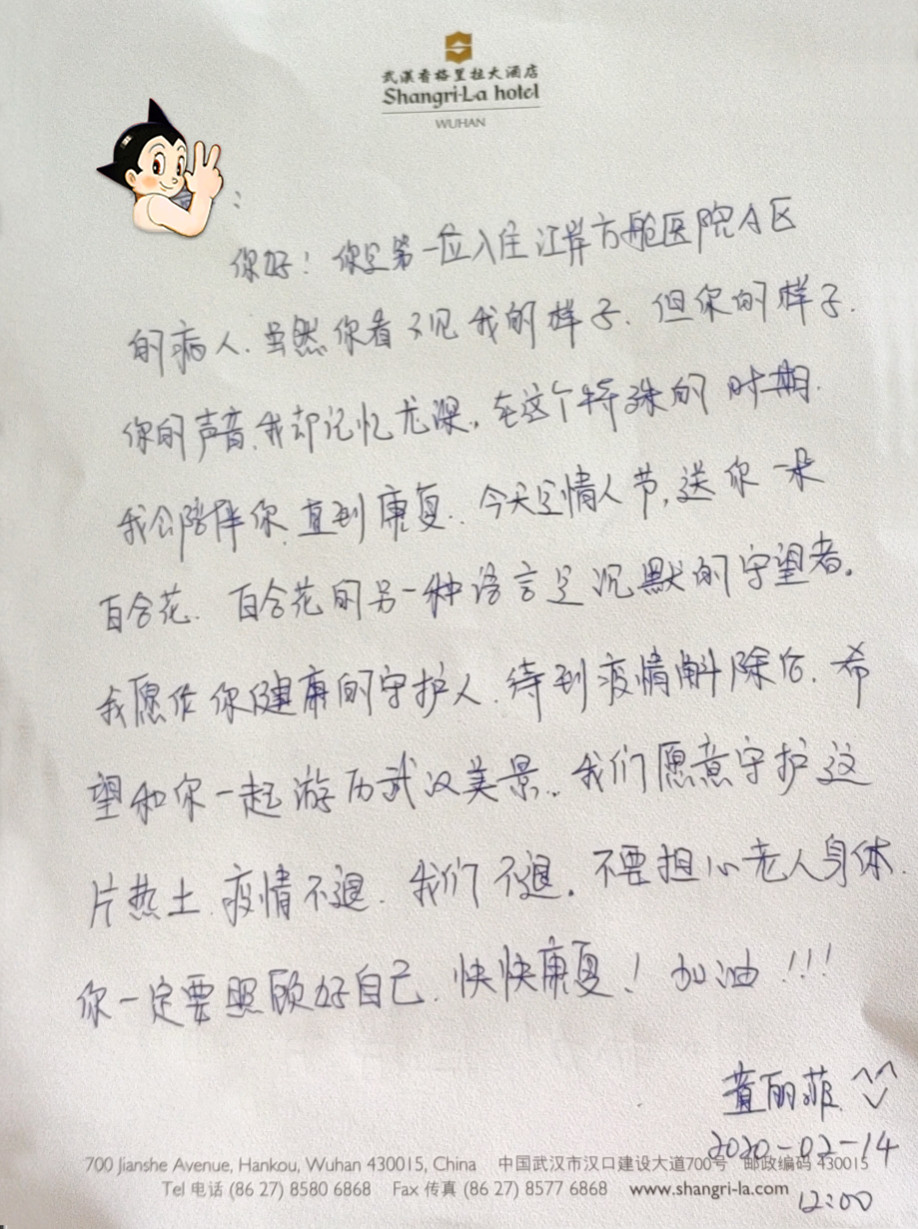 武漢香格里拉大酒店
Shangri-La hotel
WUHAN
:
你好！你是第一位入住江岸方舱医院A区
的病人.虽然你看不见我的样子.但你的样子.
你的声音.我却记忆尤深.在这个特殊的时期.
我会陪伴你.直到康复.今天是情人节,送你一朵
百合花.百合花的另一种语言是沉默的守望者.
我愿作你健康的守护人.待到疫情解除后.希
望和你一起游历武汉美景.我们愿意守护这
片热土.疫情不退.我们不退.不要担心老人身体.
你一定要照顾好自己.快快康复！加油!!!
黄丽菲
2020-02-14
12:00
700 Jianshe Avenue, Hankou, Wuhan 430015, China 中国武汉市汉口建设大道700号 邮政编码 430015
Tel 电话 (86 27) 8580 6868 Fax 传真 (86 27) 8577 6868 www.shangri-la.com